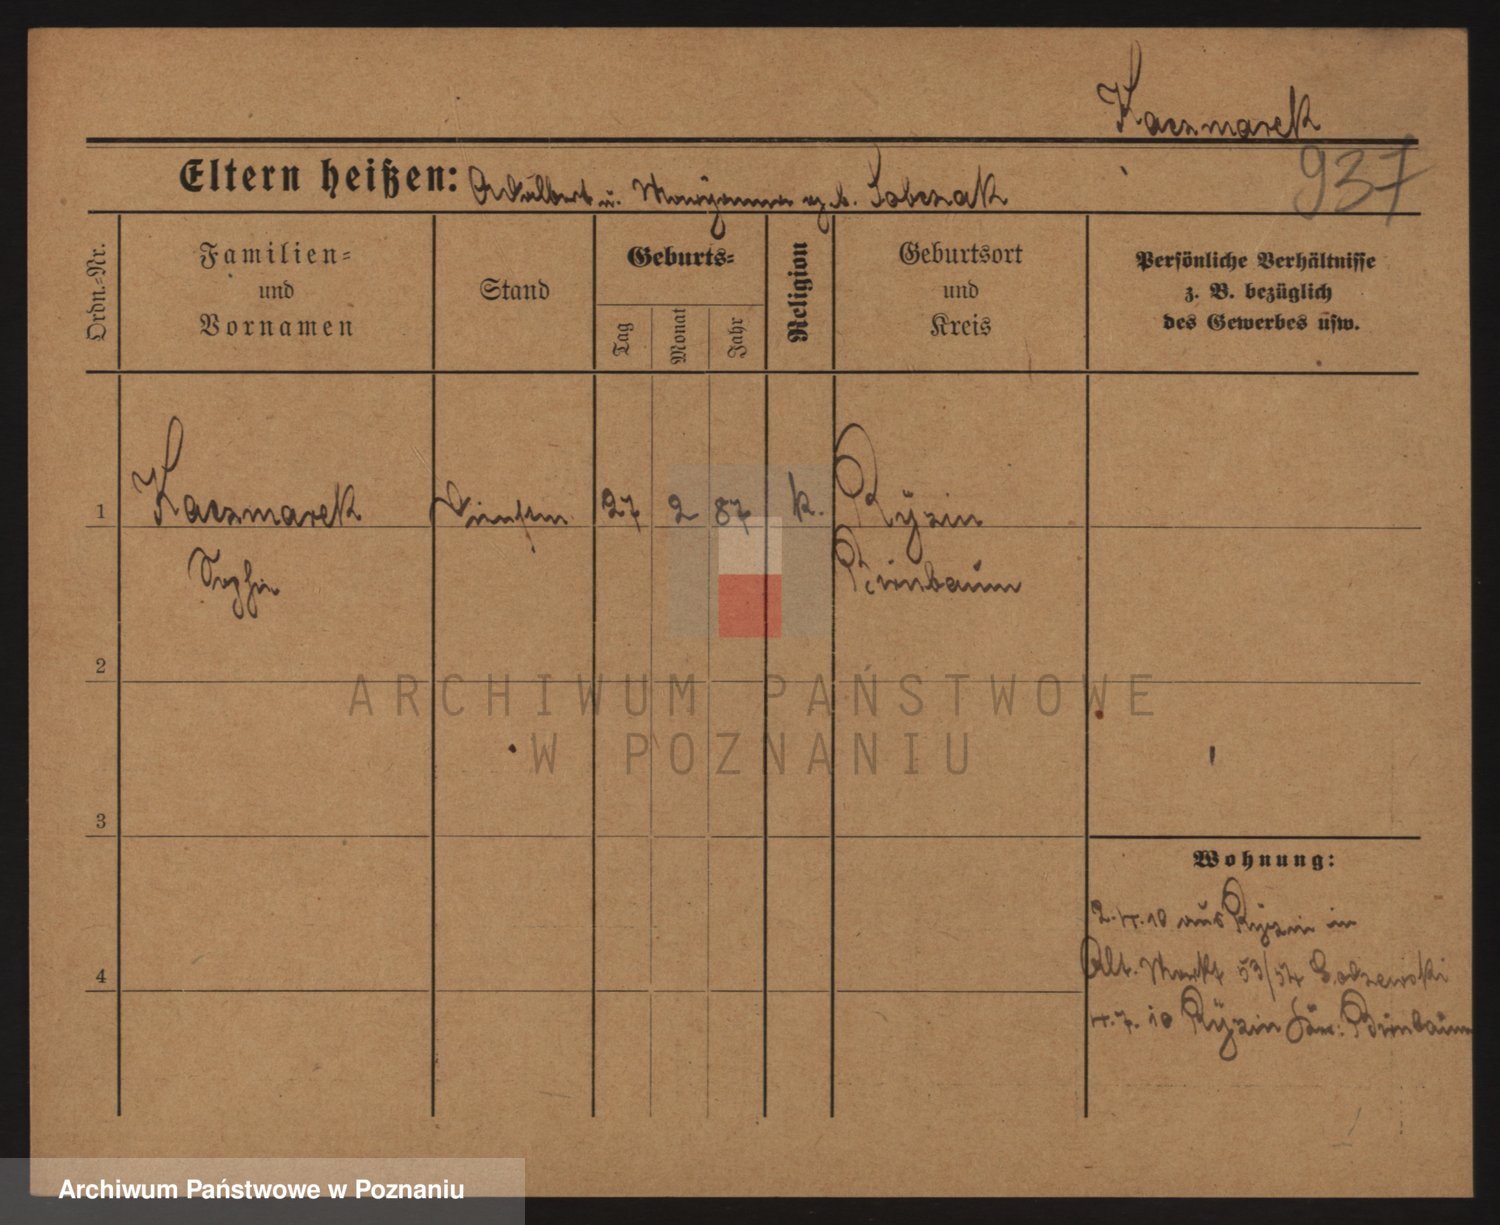 Kaczmarek
937
Eltern heißen: Adalbert u. Maryanna geb. Sobczak
Ordn.-Nr.
Familien-
und
Vornamen
Stand
Geburts-
Tag
Monat
Jahr
Religion
Geburtsort
und
Kreis
Persönliche Verhältnisse
z. B. bezüglich
des Gewerbes usw.
1
Kaczmarek
27 2 87 k.
Ryzin
Sophie
Birnbaum
2
ARCHIWUM PAŃSTWOWE
W POZNANIU
3
Wohnung:
2.4.10 aus Ryzin in
4
Alt. Markt 53/54
4.7.10 Ryzin Birnbaum
Archiwum Państwowe w Poznaniu